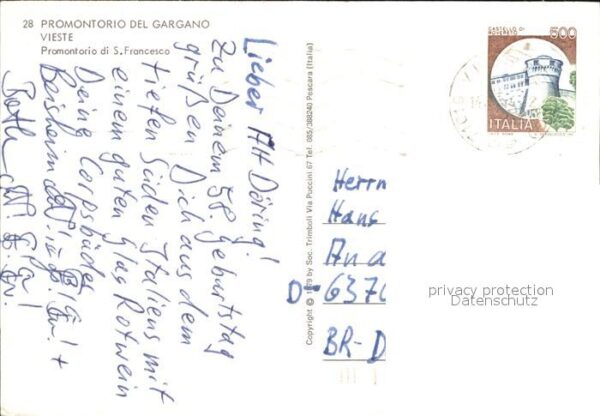 28 PROMONTORIO DEL GARGANO
VIESTE
Promontorio di S. Francesco
Lieber AH Döring!
Zu Deinem 58. Geburtstag
grüßen Dich aus dem
tiefen Süden Italiens mit
einem guten Glas Rotwein
Deine Corpsbrüder
Copyright © by Soc. Trimboli Via Puccini 67 Tel. 085/(38824) Pescara (Italia)
CASTELLO DI
ROVERETO
500
ITALIA
Herrn
Hans
Ana
D-6370
BR-D
privacy protection
Datenschutz